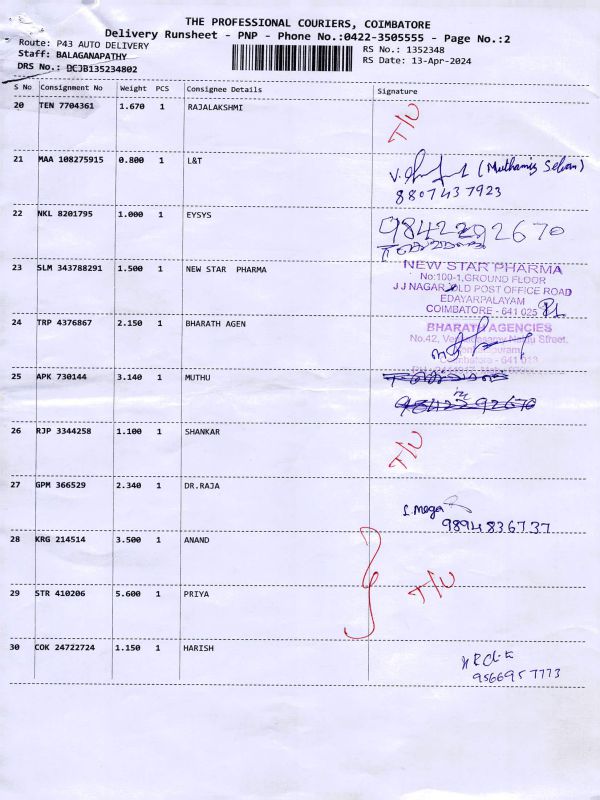 THE PROFESSIONAL COURIERS, COIMBATORE
Delivery Runsheet - PNP - Phone No.:0422-3505555 - Page No.:2
Route: P43 AUTO DELIVERY
RS No.: 1352348
Staff: BALAGANAPATHY
RS Date: 13-Apr-2024
DRS No.: DCJB135234802
S No Consignment No Weight PCS Consignee Details Signature
20 TEN 7704361 1.670 1 RAJALAKSHMI
T/U
21 MAA 108275915 0.800 1 L&T
(Muthamiz Selvan)
8807437923
22 NKL 8201795 1.000 1 EYSYS
9842292670
23 SLM 343788291 1.500 1 NEW STAR PHARMA
NEW STAR PHARMA
No:100-1,GROUND FLOOR
J J NAGAR OLD POST OFFICE ROAD
EDAYARPALAYAM
COIMBATORE - 641 025
24 TRP 4376867 2.150 1 BHARATH AGEN
BHARATH AGENCIES
No.42, Street.
Coimbatore - 641 013
25 APK 730144 3.140 1 MUTHU
26 RJP 3344258 1.100 1 SHANKAR
T/U
27 GPM 366529 2.340 1 DR.RAJA
S. Mega
9894836737
28 KRG 214514 3.500 1 ANAND
T/U
29 STR 410206 5.600 1 PRIYA
30 COK 24722724 1.150 1 HARISH
9566957773